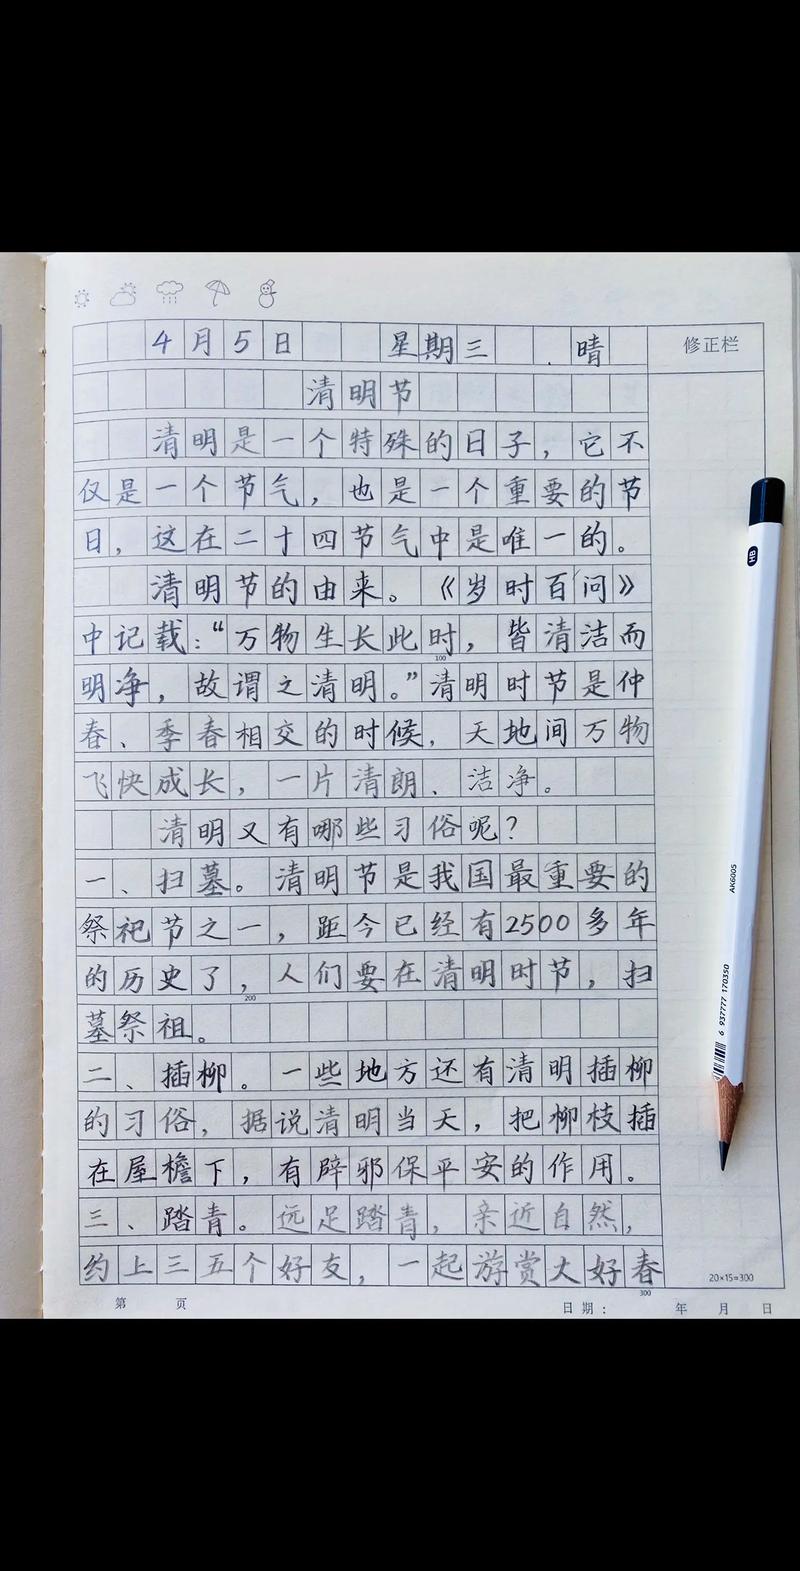 4月5日 星期三 晴
修正栏
清明节
清明是一个特殊的日子，它不
仅是一个节气，也是一个重要的节
日，这在二十四节气中是唯一的。
清明节的由来。《岁时百问》
中记载：“万物生长此时，皆清洁而
100
明净，故谓之清明。”清明时节是仲
春、季春相交的时候，天地间万物
飞快成长，一片清朗、洁净。
清明又有哪些习俗呢？
一、扫墓。清明节是我国最重要的
祭祀节之一，距今已经有2500多年
的历史了，人们要在清明时节，扫
200
墓祭祖。
二、插柳。一些地方还有清明插柳
的习俗，据说清明当天，把柳枝插
在屋檐下，有辟邪保平安的作用。
三、踏青。远足踏青，亲近自然，
约上三五个好友，一起游赏大好春
20×15=300
300
第 页
日期： 年 月 日
HB
AK6005
6 937777 170350